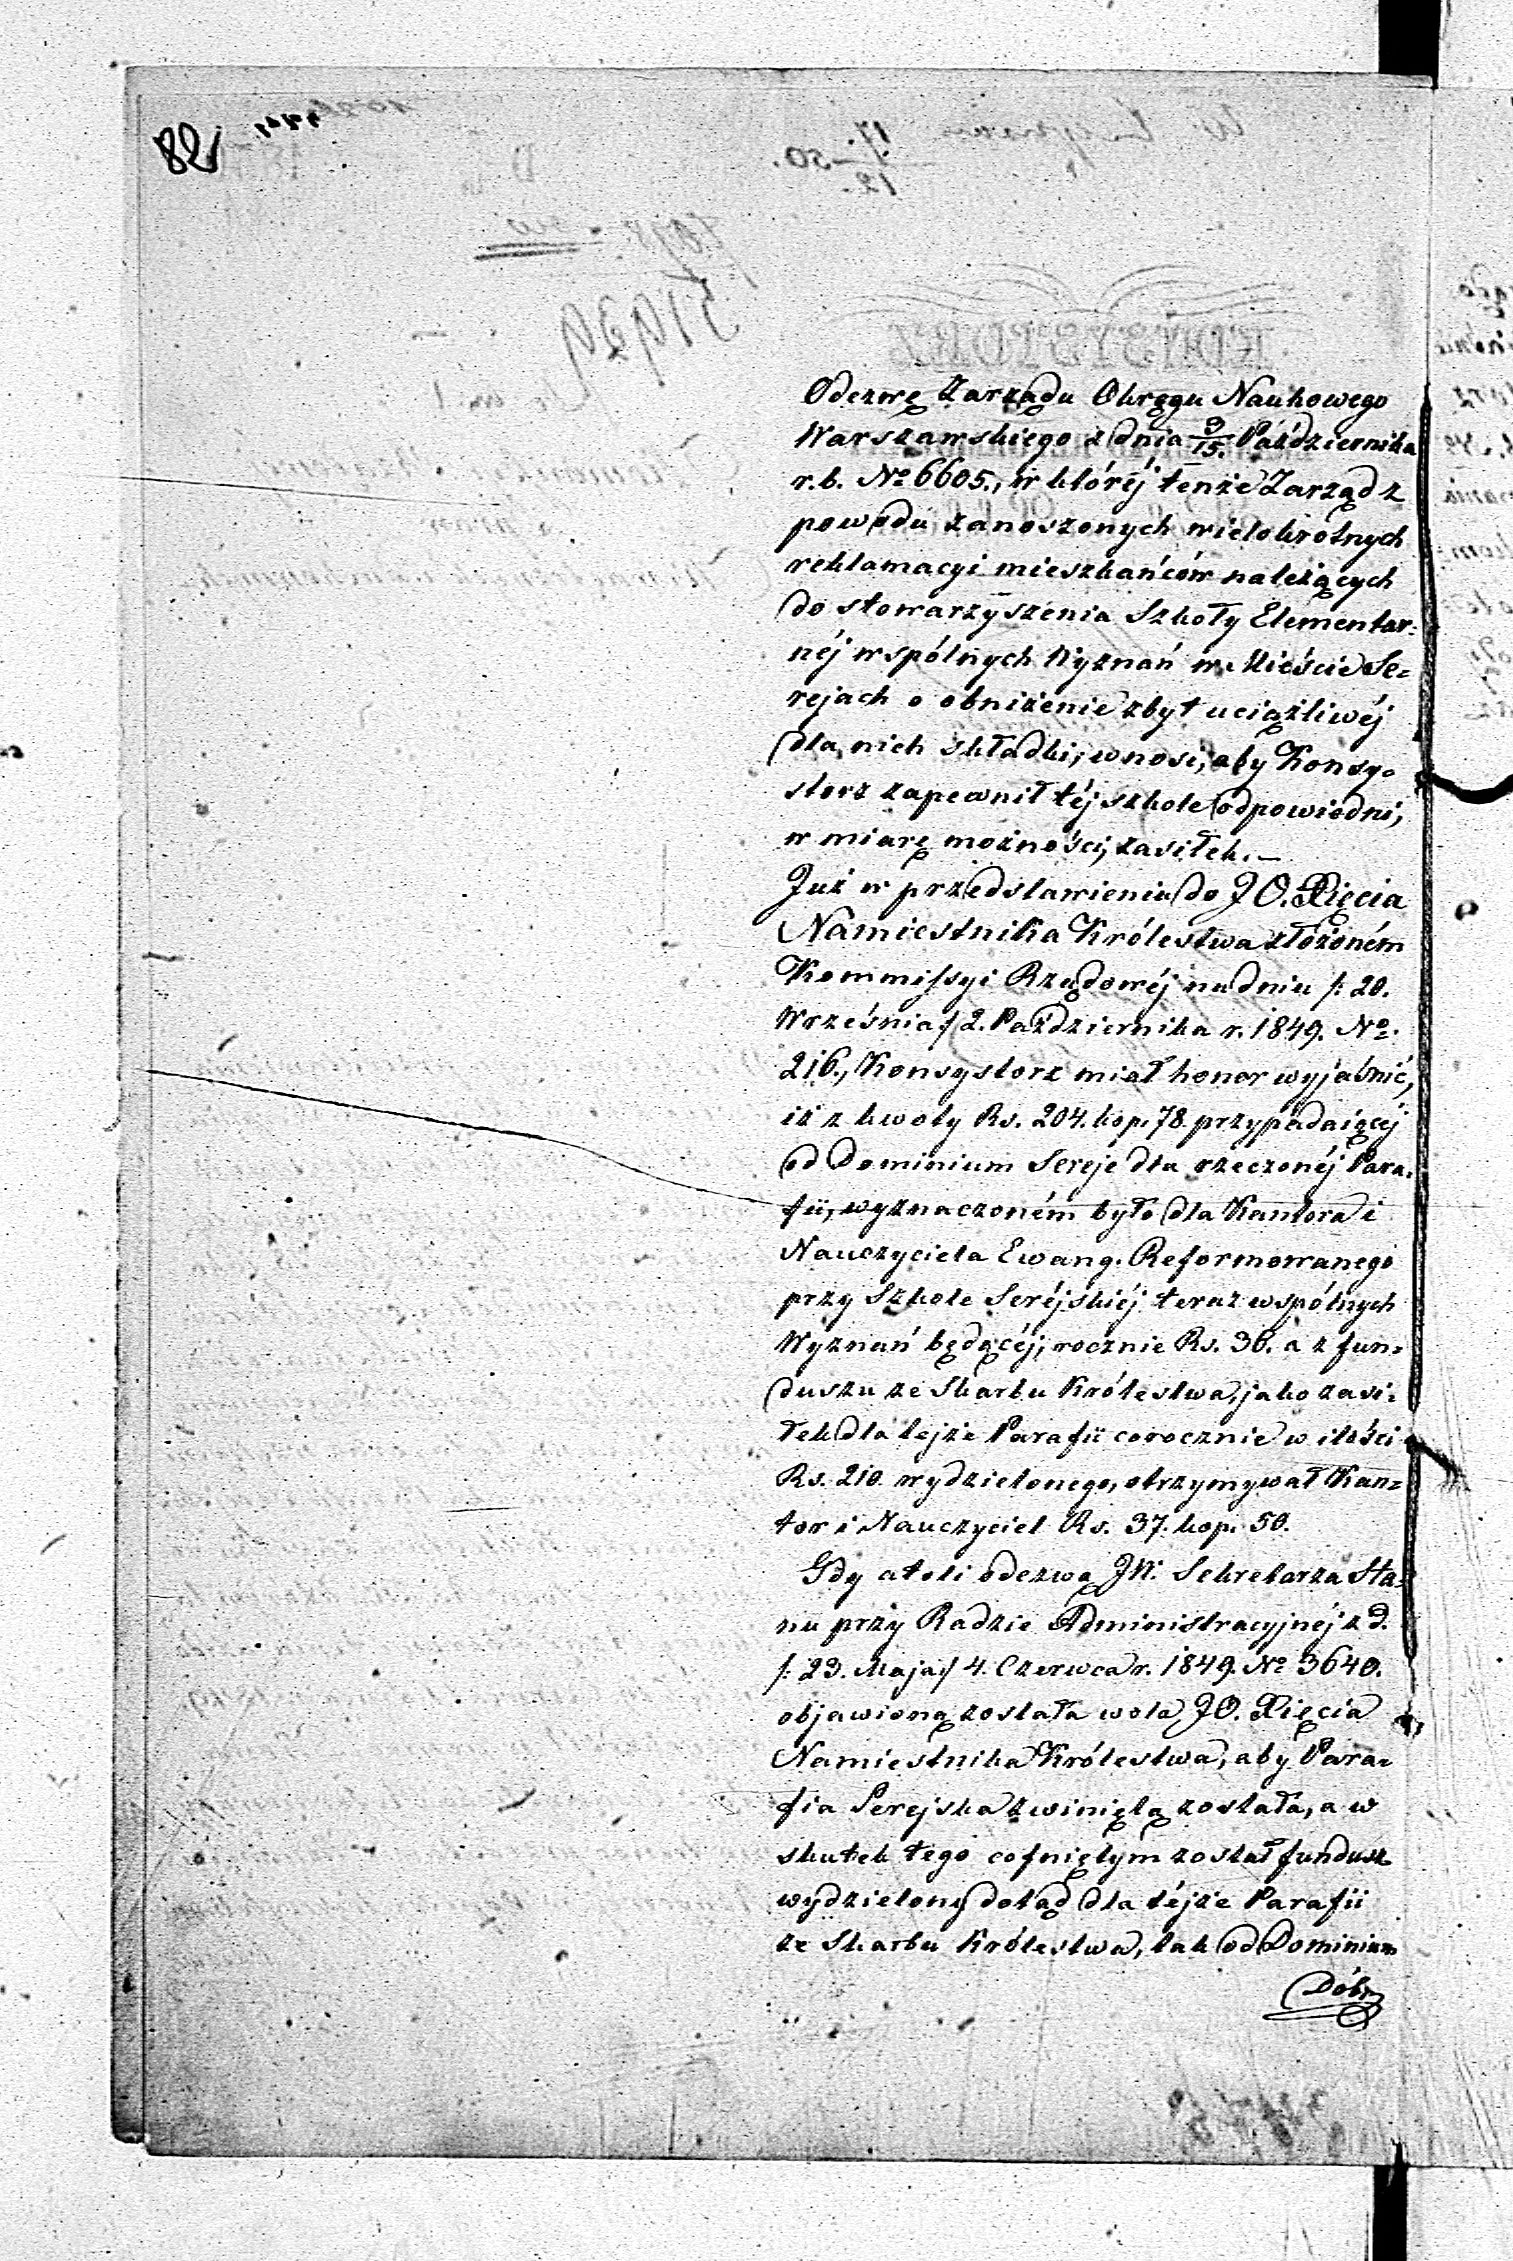 Odezwę Zarządu Okręgu Naukowego
Warszawskiego z dnia 3/15. Października
r.b. No 6605., w któréj tenże Zarząd z
powodu zanoszonych wielokrotnych
reklamacyi mieszkańców należących
do stowarzyszenia Szkoły Elementar-
néj wspólnych Wyznań w Mieście Se-
rejach o obniżenie zbyt uciążliwéj
dla nich składki, wnosi, aby Konsy-
storz zapewnił téj szkole odpowiedni,
w miarę możności, zasiłek. —
Już w przedstawieniu do JO. Xięcia
Namiestnika Królestwa złożoném
Kommissyi Rządowéj na dniu /: 20.
Września / 2. Października r. 1849. No
216., Konsystorz miał honor wyjaśnić,
iż z kwoty Rs. 204. kop. 78. przypadaiącéj
od Dominium Sereje dla rzeczonéj Para-
fii, wyznaczoném było dla Kantora i
Nauczyciela Ewang. Reformowanego
przy Szkole Seréjskiéj teraz wspólnych
Wyznań będącéj, rocznie Rs. 36. a z fun-
duszu ze Skarbu Królestwa, jako zasi-
łek dla tejże Parafii corocznie w ilości
Rs. 210. wydzielonego, otrzymywał Kan-
tor i Nauczyciel Rs. 37. kop. 50.
Gdy atoli odezwą JW. Sekretarza Sta-
nu przy Radzie Administracyjnéj z d.
/: 23. Maja / 4. Czerwca r. 1849. No 3640.
objawioną została wola JO. Xięcia
Namiestnika Królestwa, aby Para-
fia Serejska zwiniętą została, a w
skutek tego cofniętym został fundusz
wydzielony dotąd dla téjże Parafii
ze Skarbu Królestwa, tak od Dominium
Dóbr